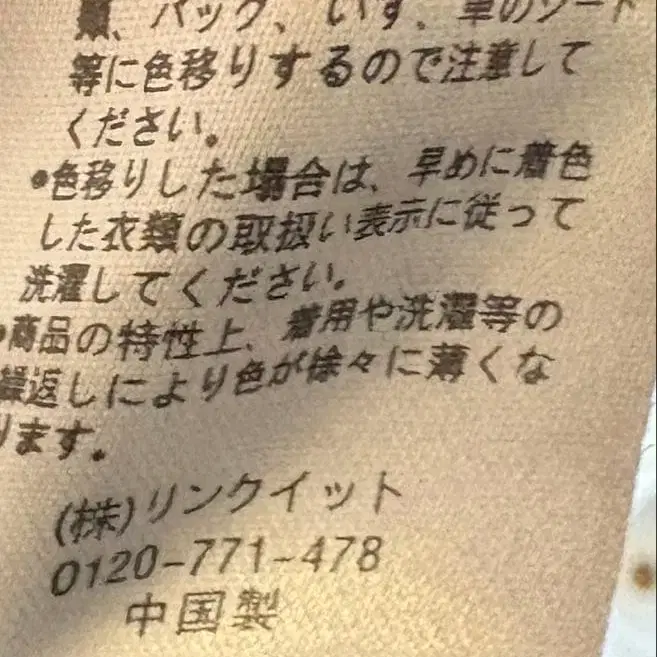 類、バッグ、いす、車のシート
等に色移りするので注意して
ください。
•色移りした場合は、早めに着色
した衣類の取扱い表示に従って
洗濯してください。
•商品の特性上、着用や洗濯等の
繰返しにより色が徐々に薄くな
ります。
(株)リンクイット
0120-771-478
中国製